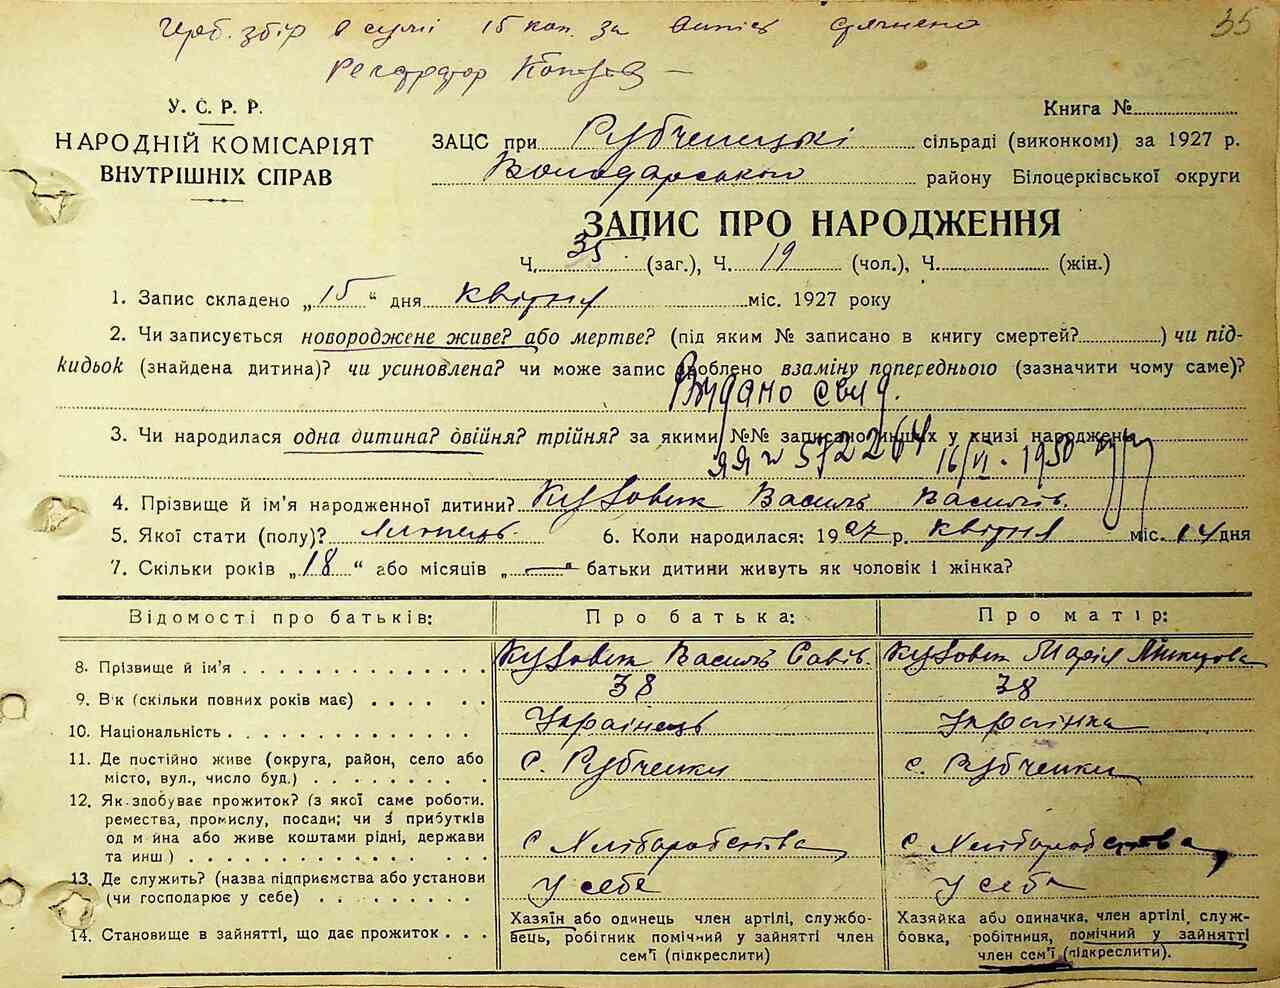 Герб. збір в сумі 15 коп. за випис стягнено
Регістратор
35
У. С. Р. Р.
НАРОДНІЙ КОМІСАРІЯТ
ВНУТРІШНІХ СПРАВ
Книга №
ЗАЦС при Рубченецькі сільраді (виконкомі) за 1927 р.
Володарського району Білоцерківської округи
ЗАПИС ПРО НАРОДЖЕННЯ
Ч. 35 (заг.), Ч. 19 (чол.), Ч. (жін.)
1. Запис складено „15“ дня квітня міс. 1927 року
2. Чи записується новороджене живе? або мертве? (під яким № записано в книгу смертей? ) чи під-
кидьок (знайдена дитина)? чи усиновлена? чи може запис зроблено взаміну попереднього (зазначити чому саме)?
Видано свид.
3. Чи народилася одна дитина? двійня? трійня? за якими №№ записано инших у книзі народжень
ЯЯ № 572264 16/VI - 1950
4. Прізвище й ім'я народженної дитини? Кузовик Василь Васильів.
5. Якої стати (полу)? хлопець. 6. Коли народилася: 1927 р. квітня міс. 14 дня
7. Скільки років „18“ або місяців „—“ батьки дитини живуть як чоловік і жінка?
Відомості про батьків: Про батька: Про матір:
8. Прізвище й ім'я Кузовик Василь Савів. Кузовик Марія
9. Вік (скільки повних років має) 38 38
10. Національність Українець Українка
11. Де постійно живе (округа, район, село або
місто, вул., число буд.) с. Рубченки с. Рубченки
12. Як здобуває прожиток? (з якої саме роботи.
ремества, промислу, посади; чи з прибутків
од майна або живе коштами рідні, держави
та инш.) с Хліборобства с Хліборобства
13. Де служить? (назва підприємства або установи
(чи господарює у себе) у себе у себе
14. Становище в зайнятті, що дає прожиток
Хазяїн або одинець член артілі, службо-
вець, робітник помічний у зайнятті член
сем'ї (підкреслити)
Хазяйка або одиначка, член артілі, служ-
бовка, робітниця, помічний у зайнятті
член сем'ї (підкреслити).